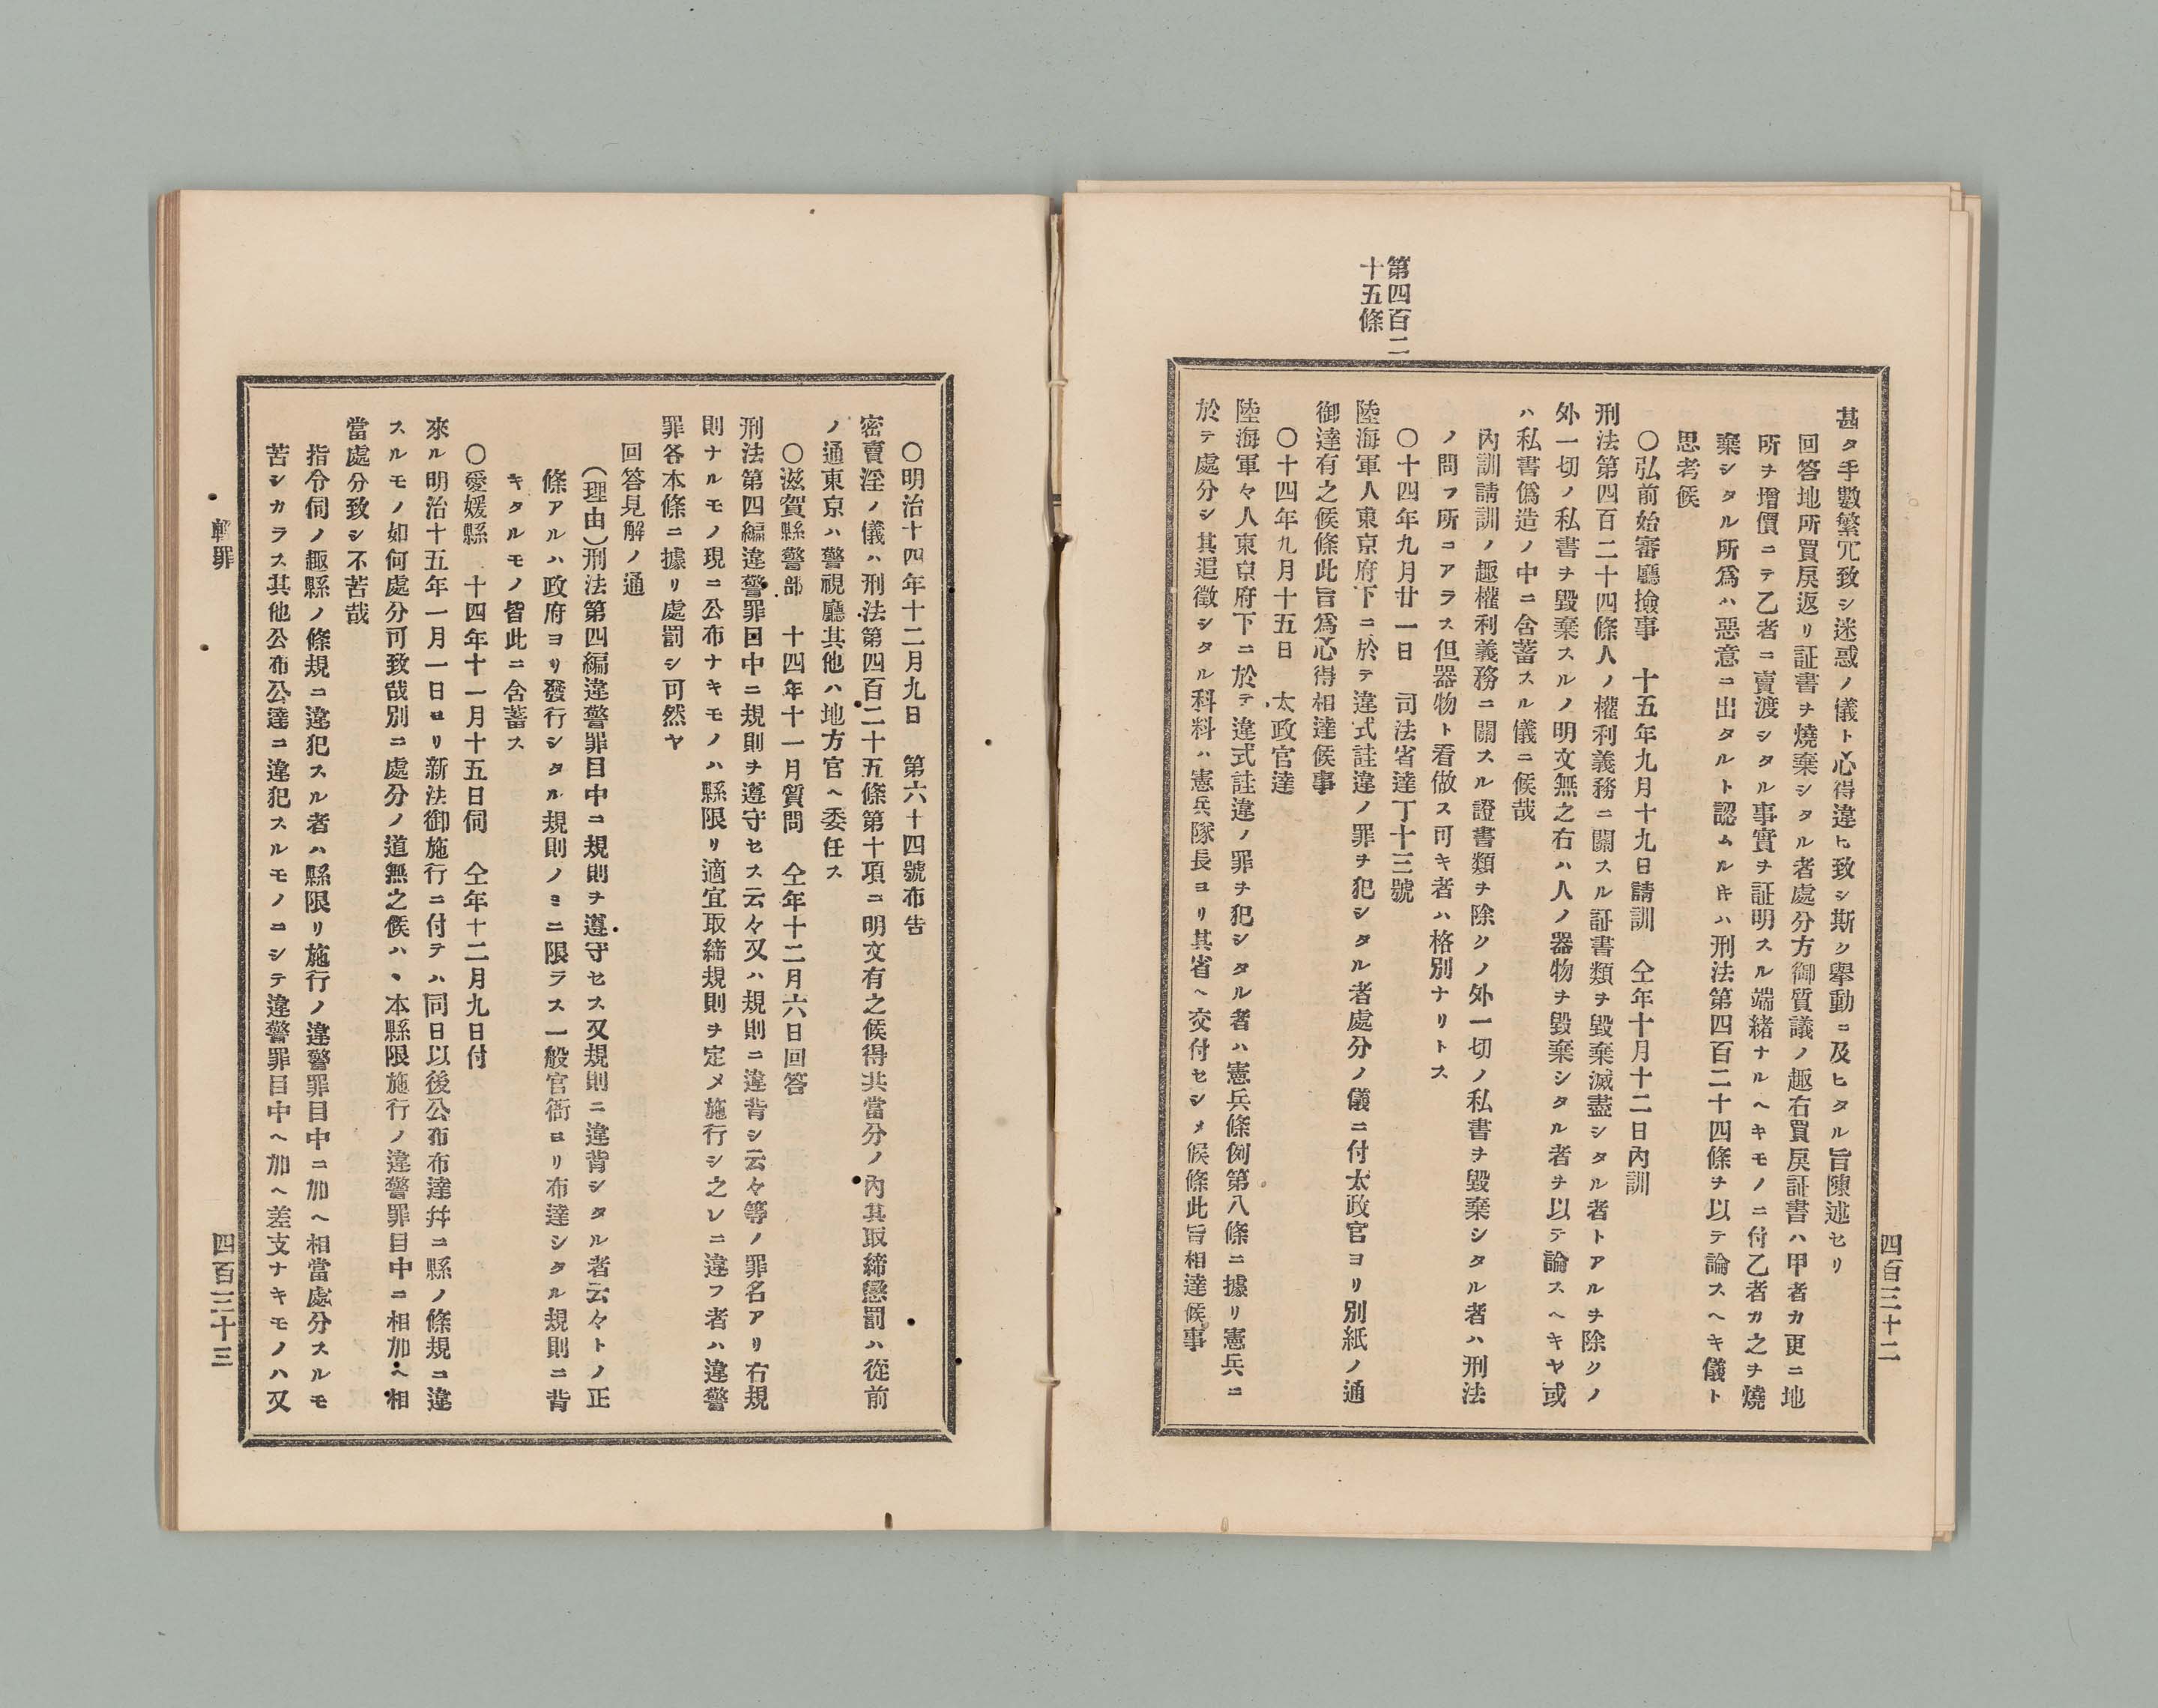 四百三十二
甚タ手數繁冗致シ迷惑ノ儀ト心得違ヒ致シ斯ク擧動ニ及ヒタル旨陳述セリ
回答地所買戾返リ証書ヲ燒棄シタル者處分方御質議ノ趣右買戾証書ハ甲者カ更ニ地
所ヲ增價ニテ乙者ニ賣渡シタル事實ヲ証明スル端緖ナルヘキモノニ付乙者カ之ヲ燒
棄シタル所爲ハ惡意ニ出タルト認ムル𬼀ハ刑法第四百二十四條ヲ以テ論スヘキ儀ト
思考候
〇弘前始審廳撿事 十五年九月十九日請訓 仝年十月十二日內訓
刑法第四百二十四條人ノ權利義務ニ關スル証書類ヲ毀棄滅盡シタル者トアルヲ除クノ
外一切ノ私書ヲ毀棄スルノ明文無之右ハ人ノ器物ヲ毀棄シタル者ヲ以テ論スヘキヤ或
ハ私書僞造ノ中ニ含蓄スル儀ニ候哉
內訓請訓ノ趣權利義務ニ關スル證書類ヲ除クノ外一切ノ私書ヲ毀棄シタル者ハ刑法
ノ問フ所ニアラス但器物ト看做ス可キ者ハ格別ナリトス
第四百二
十五條
〇十四年九月廿一日 司法省達丁十三號
陸海軍人東京府下ニ於テ違式詿違ノ罪ヲ犯シタル者處分ノ儀ニ付太政官ヨリ別紙ノ通
御達有之候條此旨爲心得相達候事
〇十四年九月十五日 太政官達
陸海軍々人東京府下ニ於テ違式詿違ノ罪ヲ犯シタル者ハ憲兵條例第八條ニ據リ憲兵ニ
於テ處分シ其追徵シタル科料ハ憲兵隊長ヨリ其省ヘ交付セシメ候條此旨相達候事
〇明治十四年十二月九日 第六十四號布告
密賣淫ノ儀ハ刑法第四百二十五條第十項ニ明文有之候得共當分ノ內其取締懲罰ハ從前
ノ通東京ハ警視廳其他ハ地方官ヘ委任ス
〇滋賀縣警部 十四年十一月質問 仝年十二月六日回答
刑法第四編違警罪目中ニ規則ヲ遵守セス云々又ハ規則ニ違背シ云々等ノ罪名アリ右規
則ナルモノ現ニ公布ナキモノハ縣限リ適宜取締規則ヲ定メ施行シ之レニ違フ者ハ違警
罪各本條ニ據リ處罰シ可然ヤ
回答見解ノ通
(理由)刑法第四編違警罪目中ニ規則ヲ遵守セス又規則ニ違背シタル者云々トノ正
條アルハ政府ヨリ發行シタル規則ノミニ限ラス一般官衙ヨリ布達シタル規則ニ背
キタルモノ皆此ニ含蓄ス
〇愛媛縣 十四年十一月十五日伺 仝年十二月九日付
來ル明治十五年一月一日ヨリ新法御施行ニ付テハ同日以後公布布達幷ニ縣ノ條規ニ違
スルモノ如何處分可致哉別ニ處分ノ道無之候ハヽ本縣限施行ノ違警罪目中ニ相加ヘ相
當處分致シ不苦哉
指令伺ノ趣縣ノ條規ニ違犯スル者ハ縣限リ施行ノ違警罪目中ニ加ヘ相當處分スルモ
苦シカラス其他公布公達ニ違犯スルモノニシテ違警罪目中ヘ加ヘ差支ナキモノハ又
輕罪
四百三十三